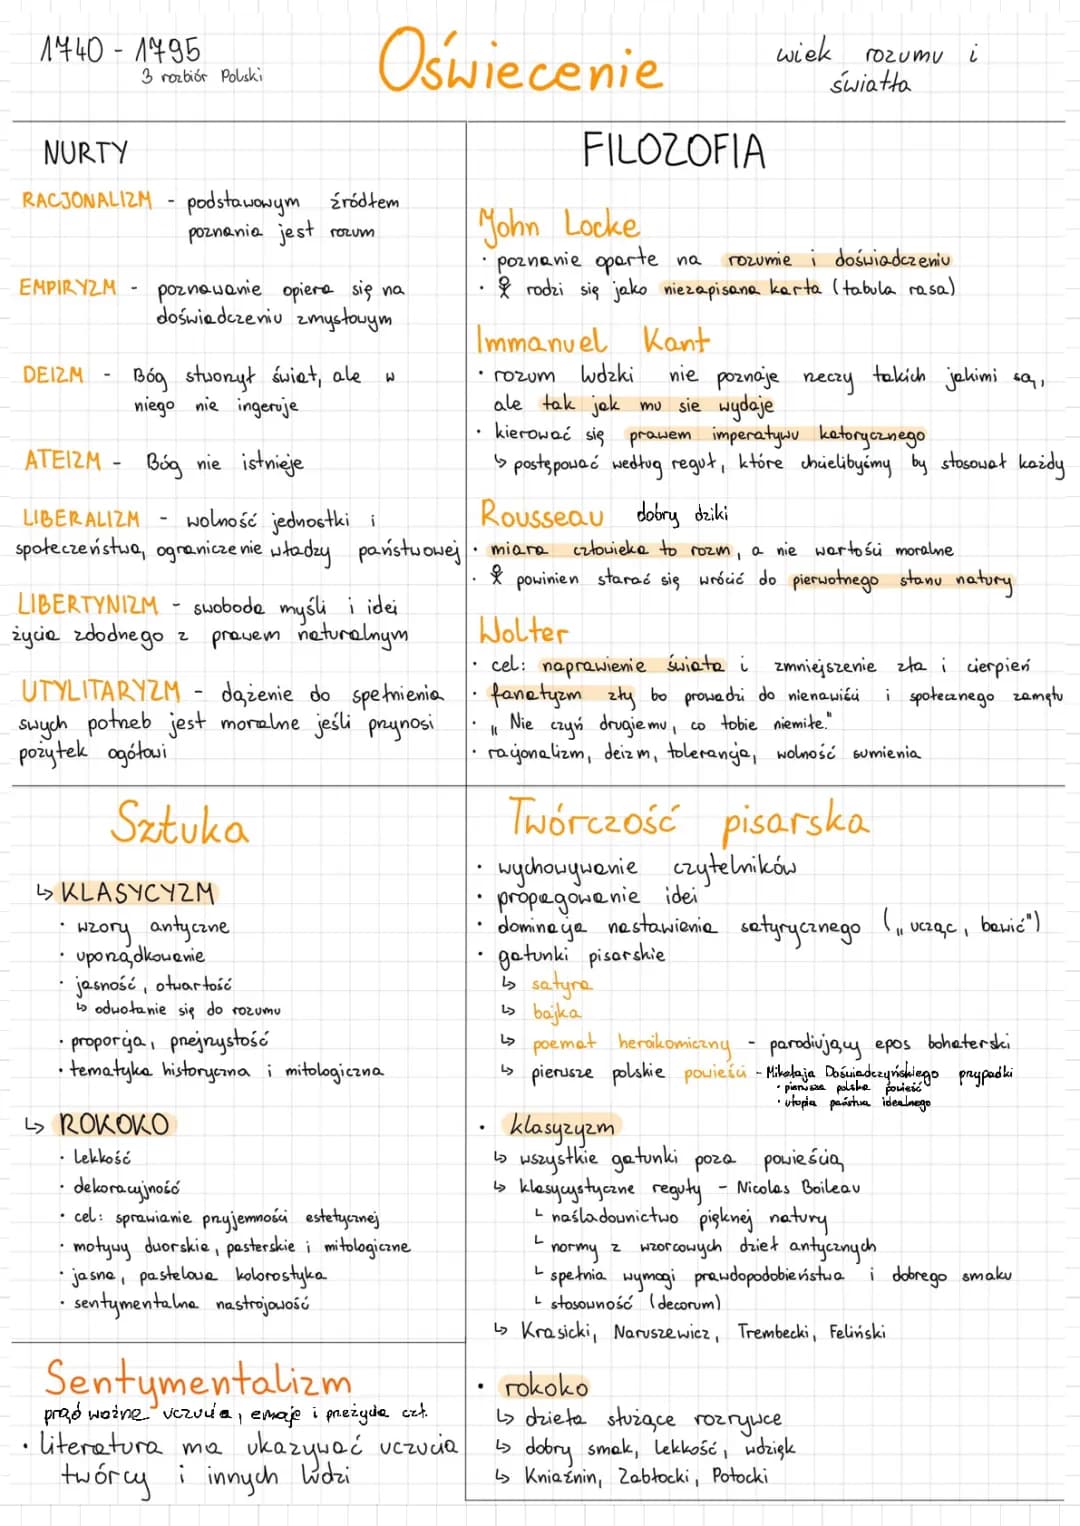 1740 - 1795
3 rozbiór Polski
Oświecenie
wiek rozumu i
światła
NURTY
RACJONALIZM - podstawowym źródłem
poznania jest rozum
EMPIRYZM - poznawanie opiera się na
doświadczeniu zmysłowym
DEIZM - Bóg stworzył świat, ale w
niego nie ingeruje
ATEIZM - Bóg nie istnieje
LIBERALIZM - wolność jednostki i
społeczeństwa, ograniczenie władzy państwowej
LIBERTYNIZM - swoboda myśli i idei
życia zdodnego z prawem naturalnym
UTYLITARYZM - dążenie do spełnienia
swych potrzeb jest moralne jeśli przynosi
pożytek ogółowi
FILOZOFIA
John Locke
• poznanie oparte na rozumie i doświadczeniu
• rodzi się jako niezapisana karta (tabula rasa)
Immanuel Kant
• rozum ludzki nie poznaje rzeczy takich jakimi są,
ale tak jak mu sie wydaje
• kierować się prawem imperatywu katorycznego
↳ postępować według reguł, które chcielibyśmy by stosował każdy
Rousseau dobry dziki
• miara człowieka to rozm, a nie wartości moralne
• powinien starać się wrócić do pierwotnego stanu natury
Wolter
• cel: naprawienie świata i zmniejszenie zła i cierpień
• fanatyzm zły bo prowadzi do nienawiści i społecznego zamętu
• „Nie czyń drugiemu, co tobie niemiłe."
• racjonalizm, deizm, tolerancja, wolność sumienia
Sztuka
↳ KLASYCYZM
• wzory antyczne
• uporządkowanie
• jasność, otwartość
↳ odwołanie się do rozumu
• proporcja, przejrzystość
• tematyka historyczna i mitologiczna
↳ ROKOKO
• lekkość
• dekoracyjność
• cel: sprawianie przyjemności estetycznej
• motywy dworskie, pasterskie i mitologiczne
• jasna, pastelowa kolorostyka
• sentymentalna nastrojowość
Sentymentalizm
prąd ważne uczucia, emocje i przeżycia czł.
• literatura ma ukazywać uczucia
twórcy i innych ludzi
Twórczość pisarska
• wychowywanie czytelników
• propagowanie idei
• dominacja nastawienia satyrycznego („ucząc, bawić")
• gatunki pisarskie
↳ satyra
↳ bajka
↳ poemat heroikomiczny - parodiujący epos bohaterski
↳ pierwsze polskie powieści - Mikołaja Doświadczyńskiego przypadki
• pierwsza polska powieść
• utopia państwa idealnego
• klasyzyzm
↳ wszystkie gatunki poza powieścią
↳ klasycystyczne reguły - Nicolas Boileau
└ naśladownictwo pięknej natury
└ normy z wzorcowych dzieł antycznych
└ spełnia wymogi prawdopodobieństwa i dobrego smaku
└ stosowność (decorum)
↳ Krasicki, Naruszewicz, Trembecki, Feliński
• rokoko
↳ dzieła służące rozrywce
↳ dobry smak, lekkość, wdzięk
↳ Kniaźnin, Zabłocki, Potocki